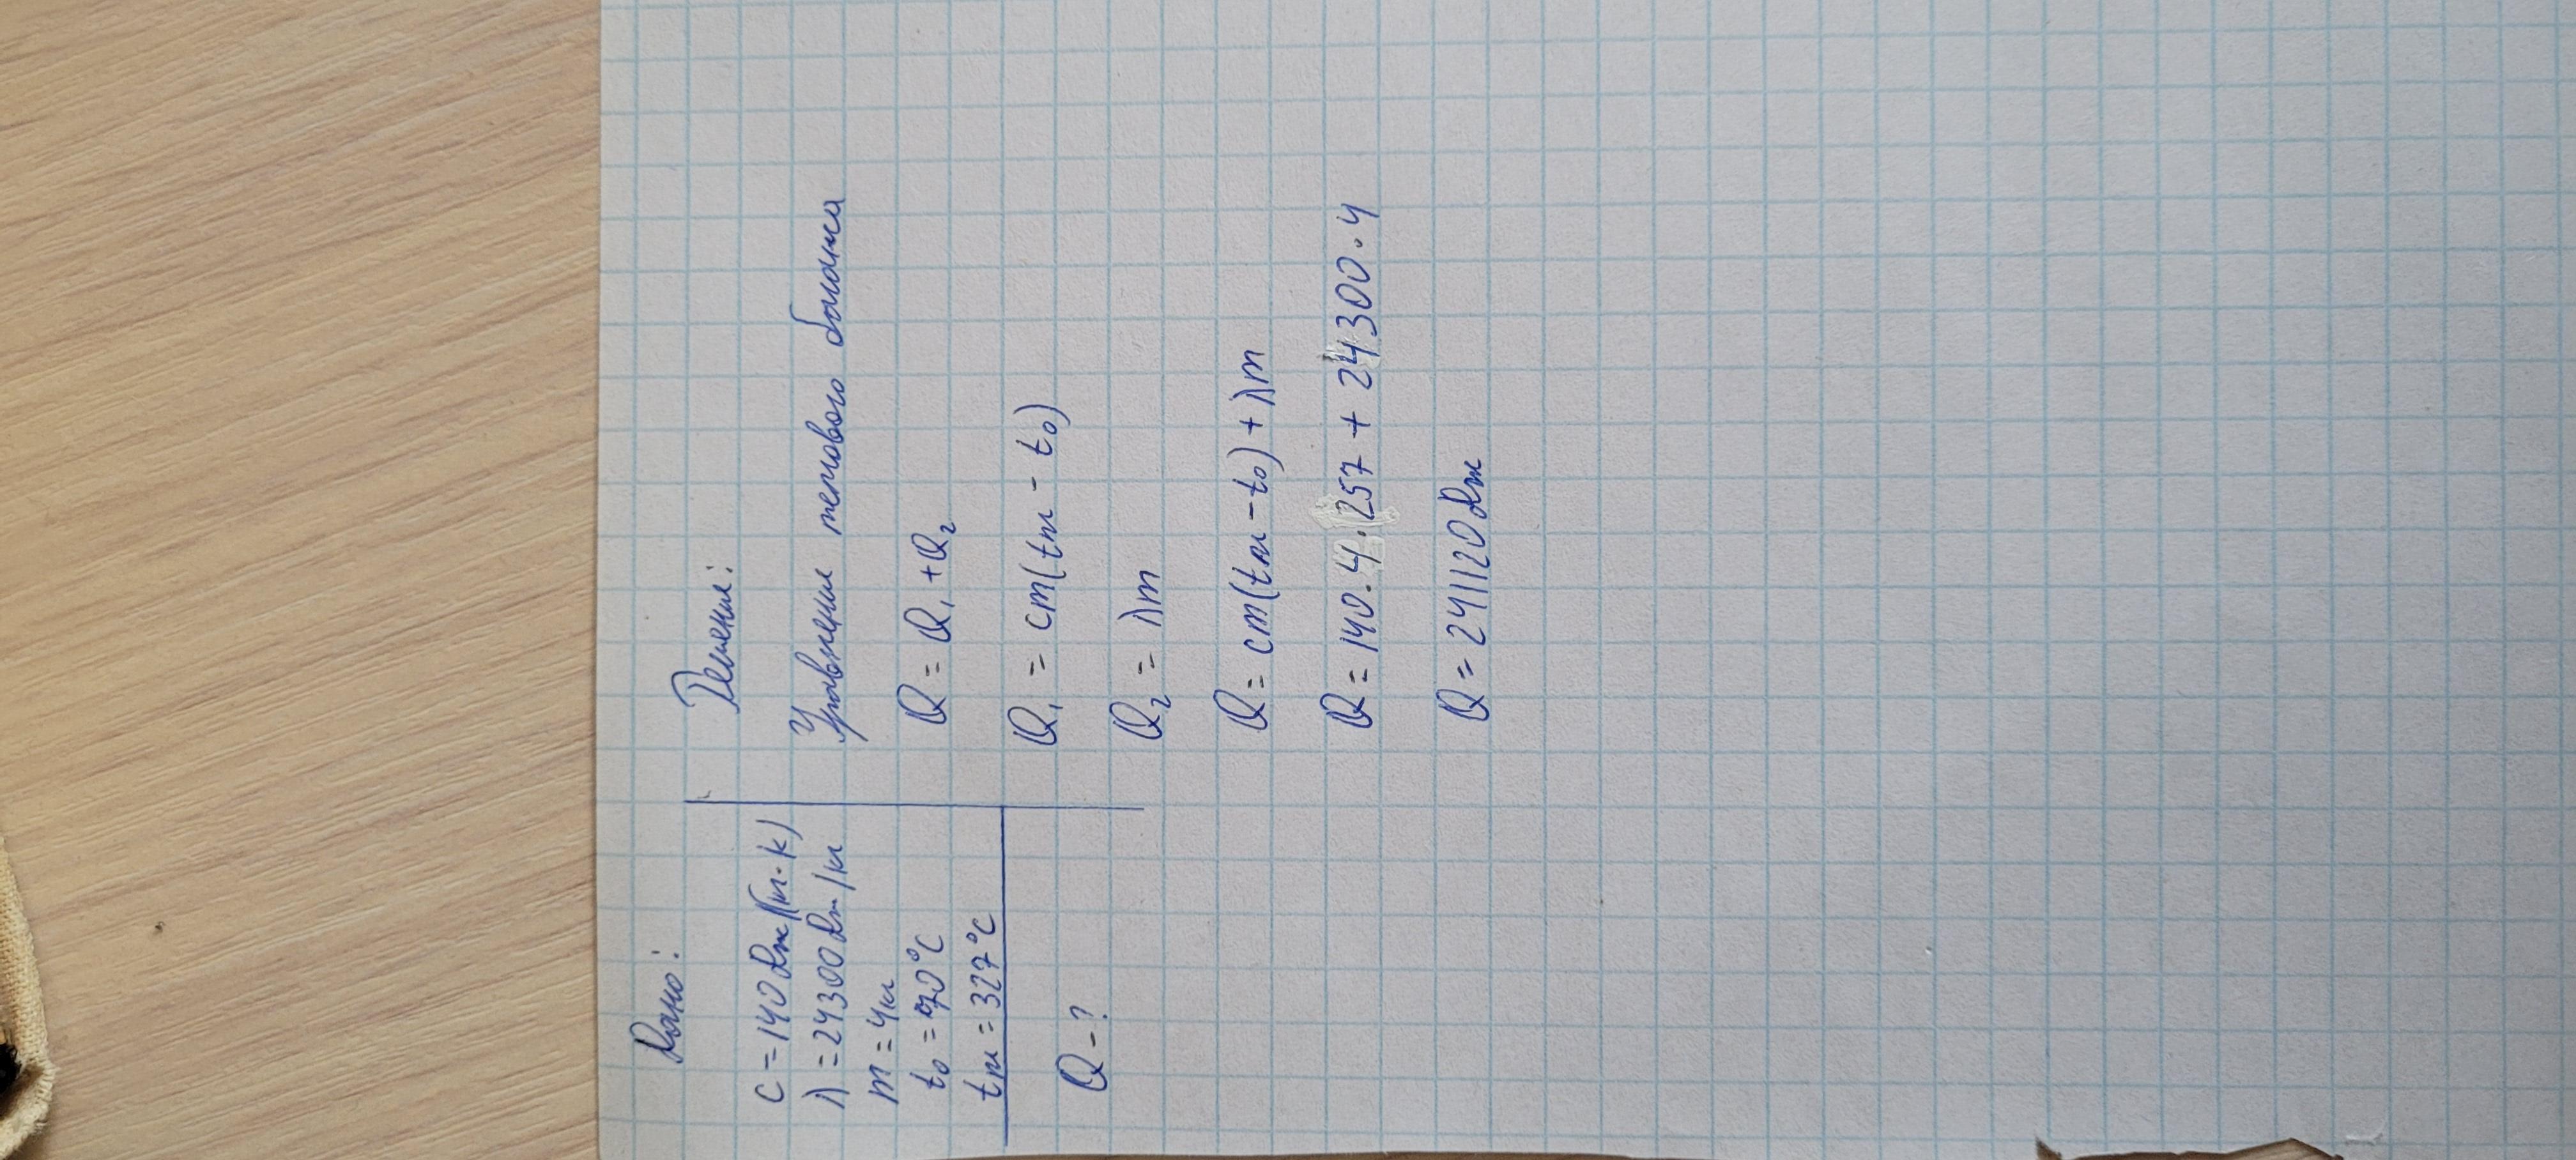 Дано:
c = 140 Дж/(кг·К)
λ = 24300 Дж/кг
m = 4кг
t₀ = 70°C
tпл = 327°C
Q - ?
Решение:
Уравнение теплового баланса
Q = Q₁ + Q₂
Q₁ = cm(tпл - t₀)
Q₂ = λm
Q = cm(tпл - t₀) + λm
Q = 140·4·257 + 24300·4
Q = 241120 Дж